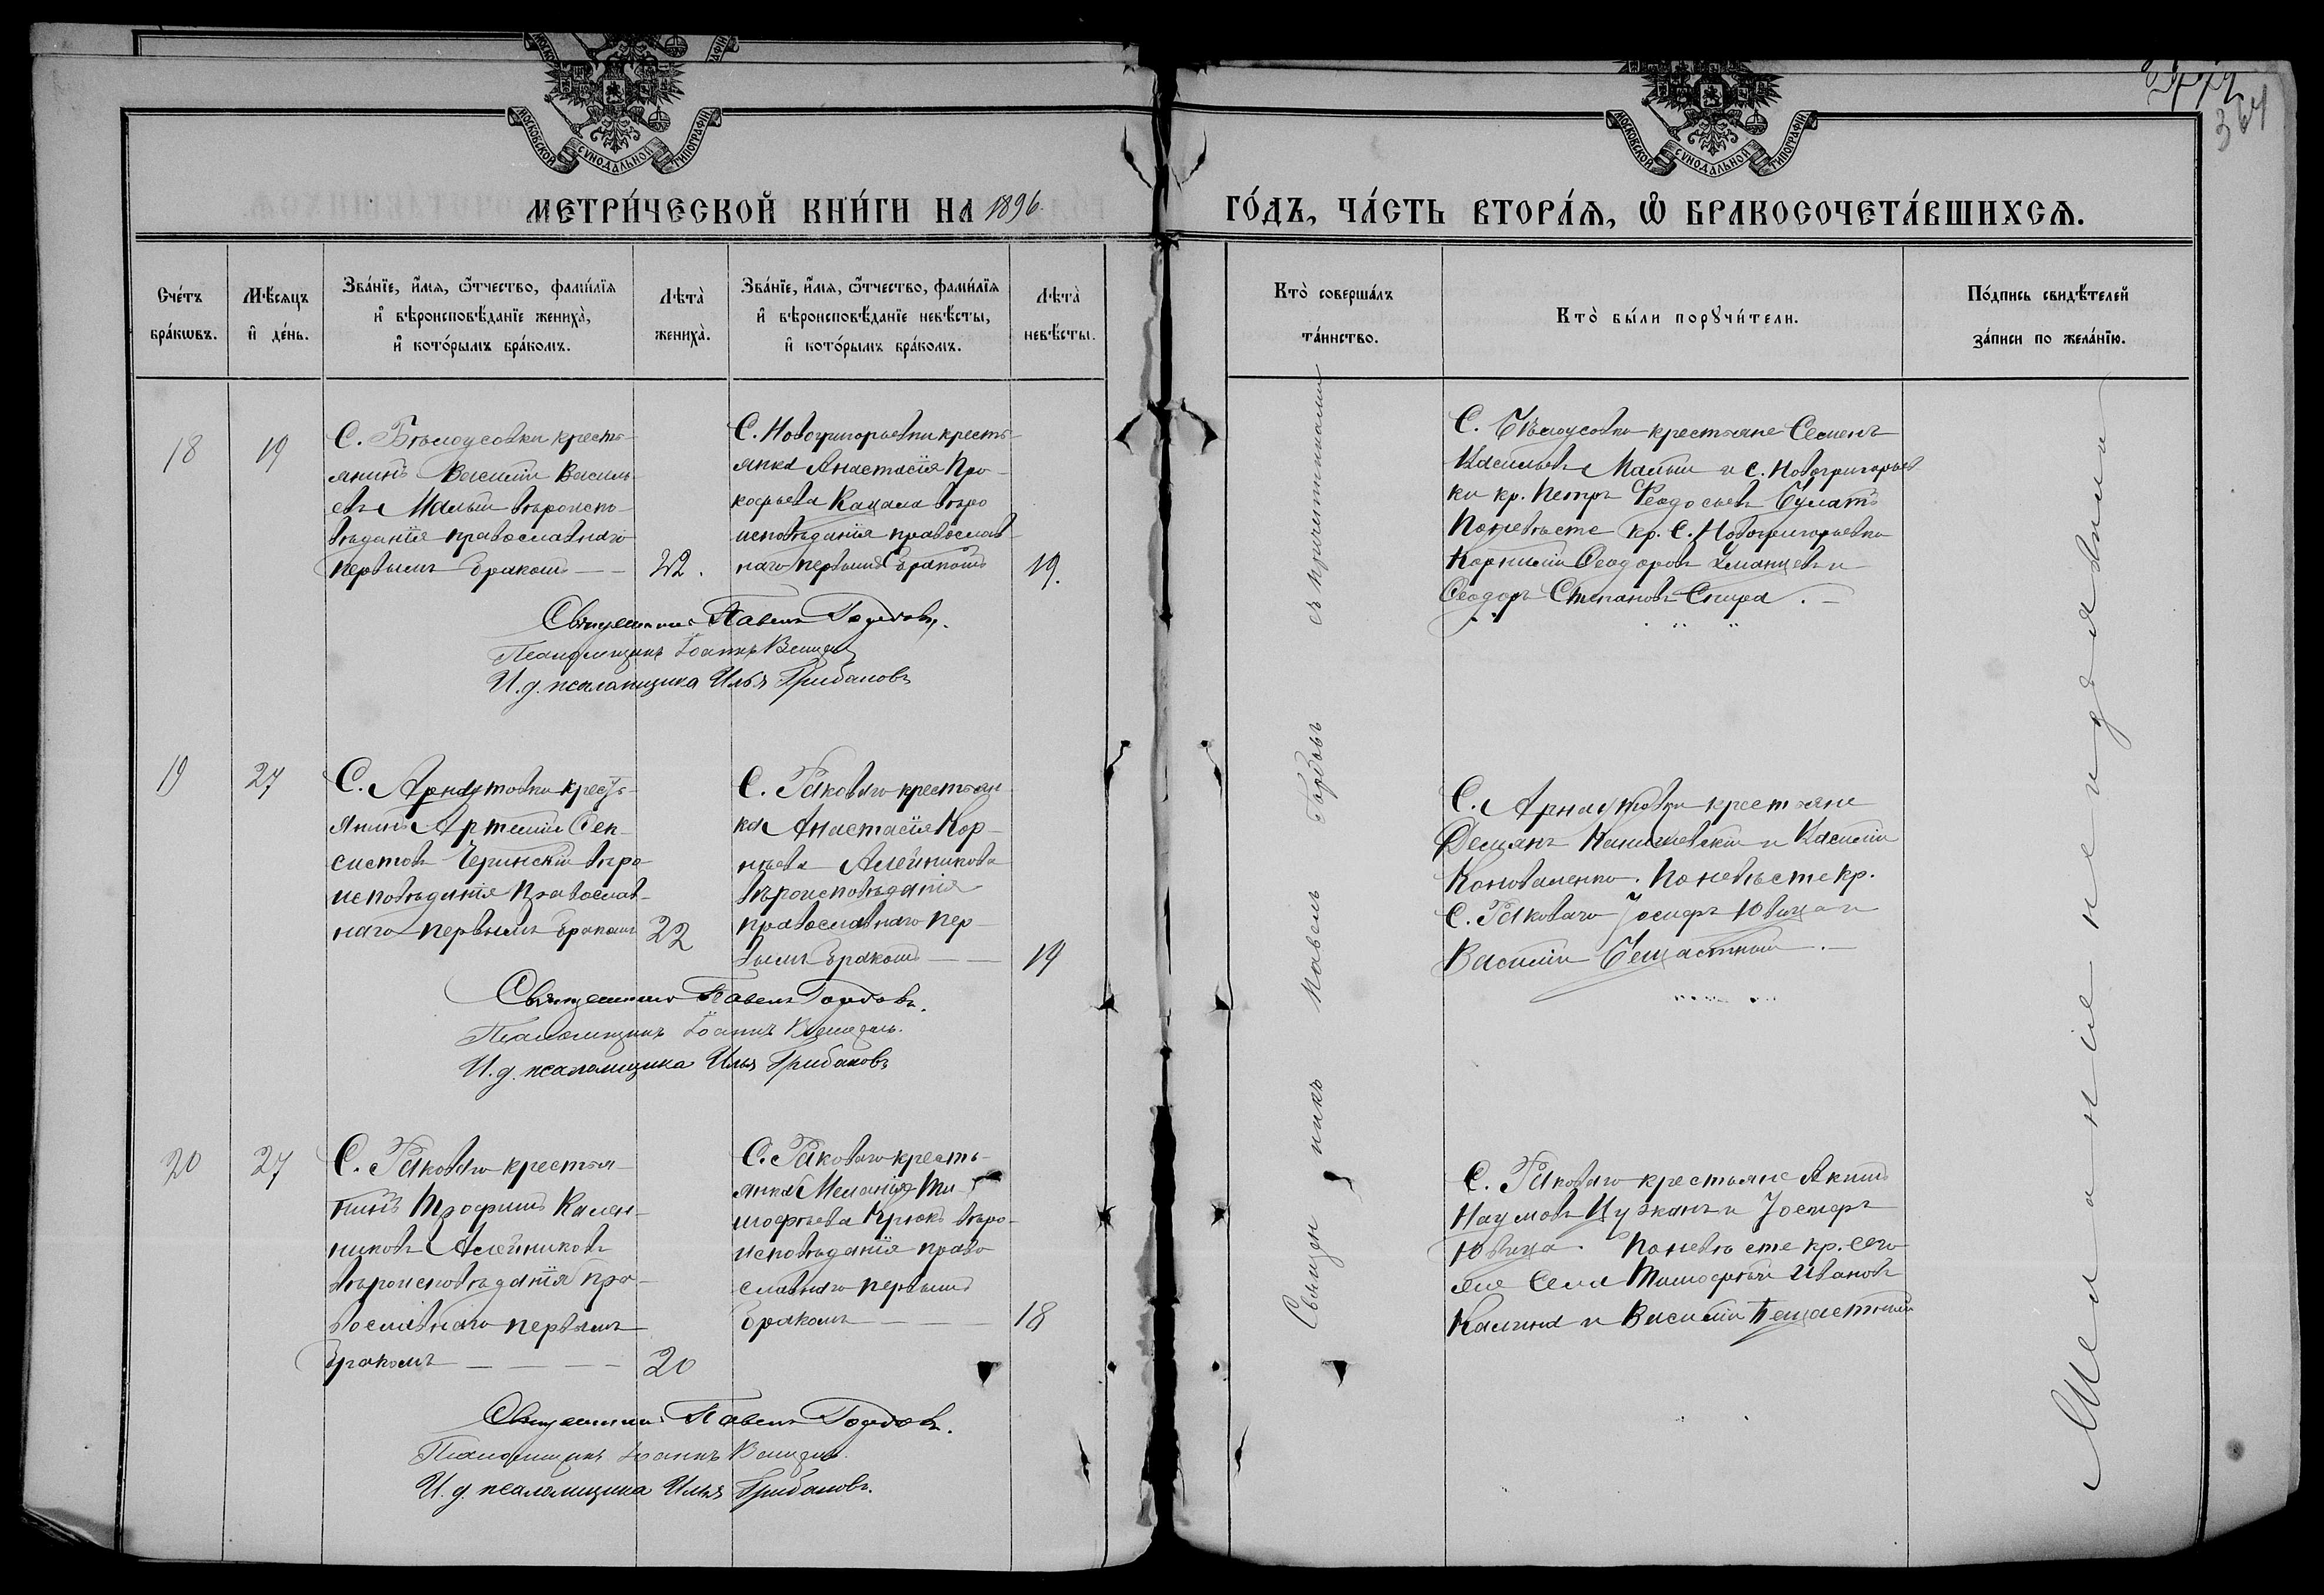 МОСКОВСКОЙ СѴНОДАЛЬНОЙ ТИПОГРАФІИ
МОСКОВСКОЙ СѴНОДАЛЬНОЙ ТИПОГРАФІИ
364
МЕТРИ́ЧЕСКОЙ КНИ́ГИ НА 1896
ГО́ДЪ, ЧА́СТЬ ВТОРА́Я, Ѽ БРАКОСОЧЕТА́ВШИХСЯ.
Сче́тъ бра́кѡвъ.
Мѣ́сяцъ и҆ де́нь.
Зва́нїе, и҆́мя, ѻ҆́тчество, фами́лїя
и҆ вѣроисповѣ́данїе жениха̀,
и҆ кото́рымъ бра́комъ.
Лѣта̀ жениха̀.
Зва́нїе, и҆́мя, ѻ҆́тчество, фами́лїя
и҆ вѣроисповѣ́данїе невѣ́сты,
и҆ кото́рымъ бра́комъ.
Лѣта̀ невѣ́сты.
Кто̀ соверша́лъ та́инство.
Кто̀ бы́ли порꙋчи́тели.
По́дпись свидѣ́телей за́писи по жела́нїю.
18
19
С. Бѣлоусовки кресть-
янинъ Василій Василь-
евъ Малый вѣроиспо-
вѣданія православнаго
первымъ бракомъ
22.
С. Новогригорьевки кресть-
янка Анастасія Про-
кофьева вѣро
исповѣданія православ-
наго первымъ бракомъ
19.
С. Бѣлоусовки крестьяне Семенъ
Васильевъ Малый и С. Новогригорьев
ки кр. Петръ Феодосьевъ Булатъ
По невѣсте кр. С. Новогригорьевки
Корнилій Феодоровъ и
Феодоръ Степановъ Спира.
Священникъ Павелъ
Псаломщикъ Іоаннъ
И. д. псаломщика Илья Грибановъ
19
27
С. Арнаутовки кресть-
янинъ Артемій
вѣро
исповѣданія Православ-
наго первымъ бракомъ
22
С. Раковаго крестьян
ка Анастасія Кор-
нѣева Алейникова
вѣроисповѣданія
православнаго пер-
вымъ бракомъ
19
С. Арнаутовки крестьяне
Демянъ и Василій
Коноваленко. По невѣсте кр.
С. Раковаго Іосифъ Ювица и
Василій Бещастный.
Священникъ Павелъ
Псаломщикъ Іоаннъ
И. д. псаломщика Илья Грибановъ
20
27
С. Раковаго крестья-
нинъ Трофимъ Кален-
никовъ Алейниковъ
вѣроисповѣданія пра-
вославнаго первымъ
бракомъ
20
С. Раковаго кресть-
янка Меланія Ти-
мофѣева Крюкъ вѣро-
исповѣданія право
славнаго первымъ
бракомъ
18
С. Раковаго крестьяне Акимъ
Наумовъ Цужанъ и Іосифъ
Ювица. По невѣсте кр. сего
же села Тимофѣй Ивановъ
Калина и Василій Бещастный
Священникъ Павелъ
Псаломщикъ Іоаннъ
И. д. псаломщика Илья Грибановъ.
Священникъ Павелъ съ причетниками
Желаніе не изъявили